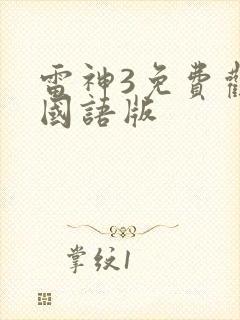 雷神3免費
國語版
掌纹1